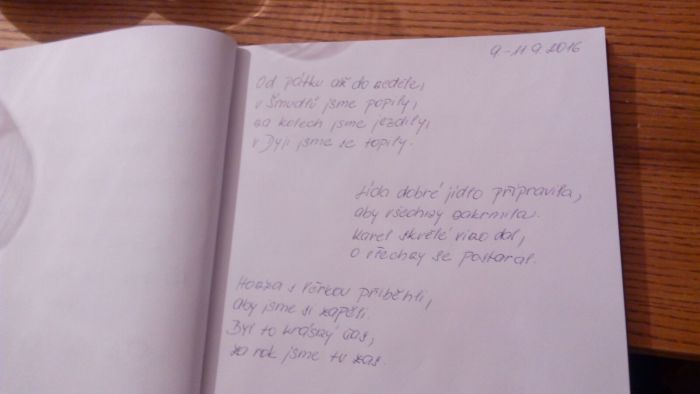 9.-11.9.2016
Od pátku až do neděle,
v Šmudlů jsme popily,
na kolech jsme jezdily,
v Dyji jsme se topily.
Lída dobré jídlo připravila,
aby všechny nakrmila.
Karel skvělé víno dal,
o všechny se postaral.
Honza s Věrkou přiběhli,
aby jsme si zapěli.
Byl to krásný čas,
za rok jsme tu zas.